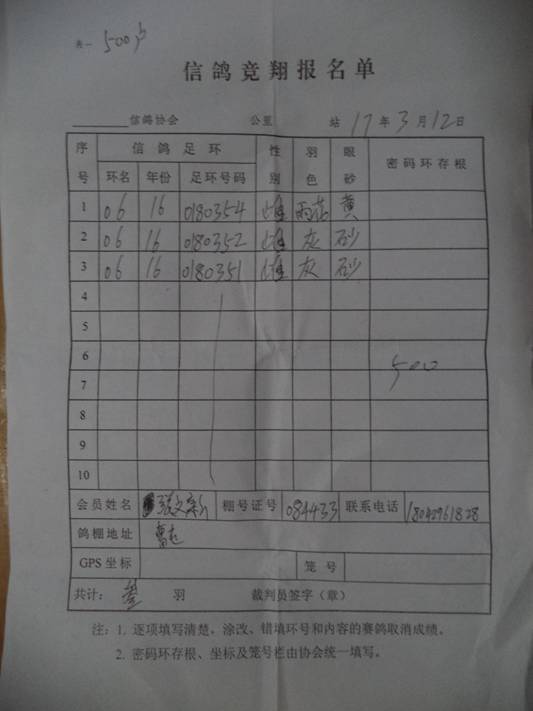 表一 500户
信鸽竞翔报名单
信鸽协会 公里 站 17年3月12日
序号 信鸽足环 性别 羽色 眼砂 密码环存根
环名 年份 足环号码
1 06 16 0180354 雄 雨花 黄
2 06 16 0180352 雄 灰 砂
3 06 16 0180351 雄 灰 砂
4
5
6
500
7
8
9
10
会员姓名 张文 棚号证号 084433 联系电话 18042961828
鸽棚地址
GPS坐标 笼号
共计: 叁 羽 裁判员签字(章)
注: 1. 逐项填写清楚, 涂改、错填环号和内容的赛鸽取消成绩。
2. 密码环存根、坐标及笼号栏由协会统一填写。